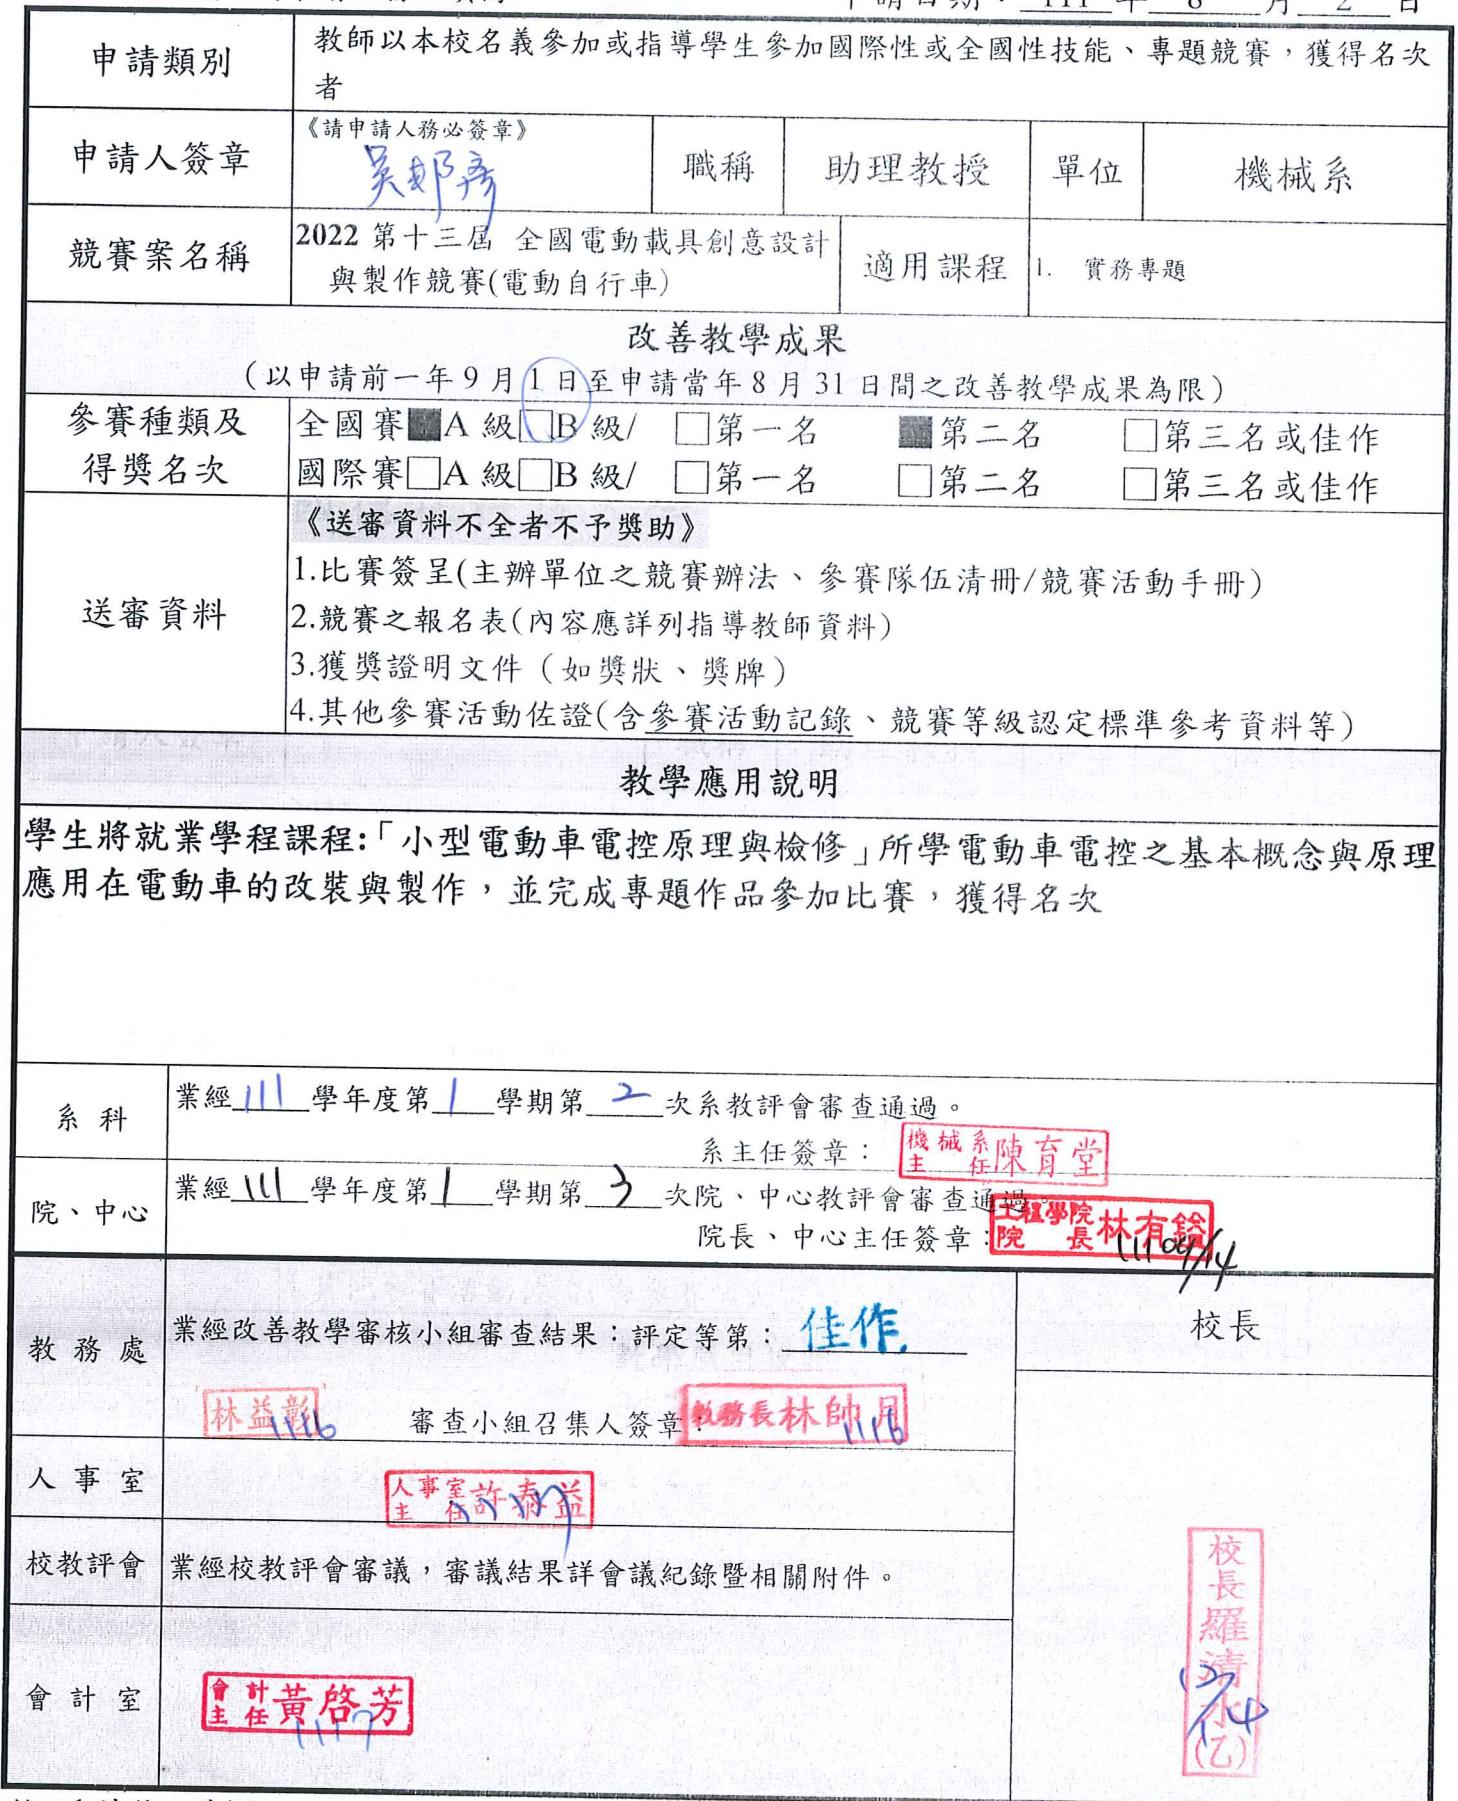 申請日期：111年8月2日
申請類別
教師以本校名義參加或指導學生參加國際性或全國性技能、專題競賽，獲得名次
者
申請人簽章
《請申請人務必簽章》
職稱
助理教授
單位
機械系
競賽案名稱
2022 第十三屆 全國電動載具創意設計
與製作競賽(電動自行車)
適用課程
1. 實務專題
改善教學成果
（以申請前一年9月1日至申請當年8月31日間之改善教學成果為限）
參賽種類及
得獎名次
全國賽■A 級□B 級/ □第一名 ■第二名 □第三名或佳作
國際賽□A 級□B 級/ □第一名 □第二名 □第三名或佳作
送審資料
《送審資料不全者不予獎助》
1.比賽簽呈(主辦單位之競賽辦法、參賽隊伍清冊/競賽活動手冊)
2.競賽之報名表(內容應詳列指導教師資料)
3.獲獎證明文件（如獎狀、獎牌）
4.其他參賽活動佐證(含參賽活動記錄、競賽等級認定標準參考資料等)
教學應用說明
學生將就業學程課程:「小型電動車電控原理與檢修」所學電動車電控之基本概念與原理
應用在電動車的改裝與製作，並完成專題作品參加比賽，獲得名次
系科
業經111學年度第1學期第2次系教評會審查通過。
系主任簽章：
機械系
主任
陳育堂
院、中心
業經111學年度第1學期第3次院、中心教評會審查通過。
院長、中心主任簽章：
工程學院
院長
林有鎰
11109/14
教務處
業經改善教學審核小組審查結果：評定等第：佳作
林益彰
1116
審查小組召集人簽章：
教務長林帥月
1116
校長
人事室
人事室
主任
許泰益
校教評會
業經校教評會審議，審議結果詳會議紀錄暨相關附件。
會計室
會計
主任
黃啓芳
1117
校長羅清水(乙)